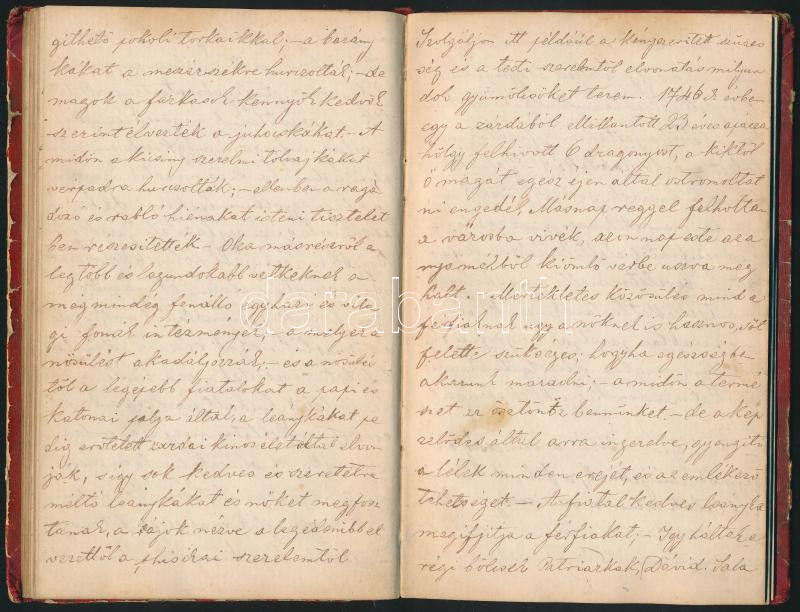 githető pokoli torkaikkal; – a bárány
kákat a mészárszékre hurczolták; – de
magok a farkasok kennyök kedvök
szerint élvezték a juhocskákat. – A
midőn a kicsiny szerelmi tolvajkákat
vérpadra hurczolták; – ellenben a raga
dozó és rabló hiénákat isteni tisztelet
ben részesitették – Oka másrészről a
legtöbb és legundokabb vétkeknek a
még mindég fenálló egyházi és vilá
gi fonák intézmények, – a melyek a
nősülést akadályozzák; – és a nősülés
től a legépebb fiatalokat a papi és
katonai pálya által, a leánykákat pe
dig erőltetett zárdai kinos élet által elvon
ják, s igy sok kedves és szeretetre
méltó leánykákat és nőket megfosz
tanak, a rájok nézve a legédesebbel
vezettől a phisikai szerelemtől
Szolgáljon itt például a kényszeritett szüzes
ség és a testi szerelemtől elvonatás milyen
dok gyümölcsöket terem. 1746 évben
egy a zárdából ellillantott 23 éves apácza
hölgy felhivott 6 dragonyost, a kiktől
ő magát egész éjen által ostromoltat
ni engedé, Másnap reggel felholtan
a városba vivék, azon nap este az a
nyaméhből kiömlő vérbe uszva meg
halt. – Mértékletes közösülés mind a
férfiaknak ugy a nőknek is hasznos, sőt
felette szükséges; hogyha egészségben
akarunk maradni; – a midőn a termé
szet ez ösztönöz bennünket, – de a kép
zelődés által arra ingerelve, gyengiti
a lélek minden erejét, és az emlékező
tehetséget. – A fiatal kedves leányka
megifjitja a férfiakat; – Igy háltak a
régi bölcsek Patriarkák, Dávid. Sala
darabanth